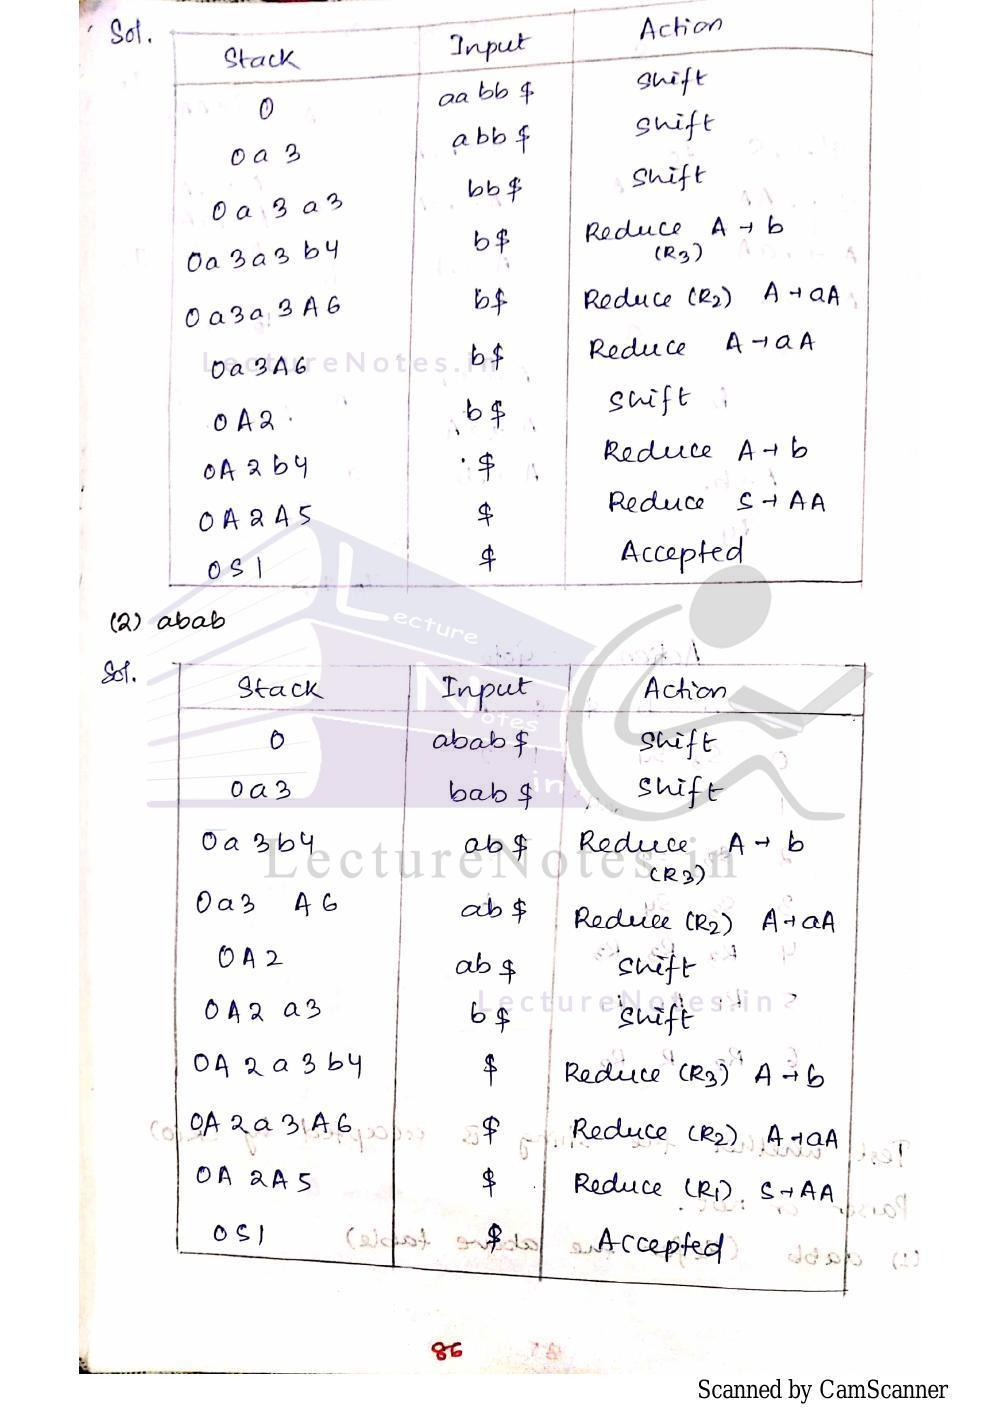 Sol.
Stack Input Action
0 aabb $ Shift
0a 3 abb $ Shift
0a 3 a3 bb $ Shift
0a 3a3 b4 b$ Reduce A → b
(R3)
0a3a 3A6 b$ Reduce (R2) A → aA
0a3A6 b$ Reduce A → aA
0A2 b$ Shift
0A 2 b4 $ Reduce A → b
0A 2 A5 $ Reduce S → AA
0S1 $ Accepted
(2) abab
Sol.
Stack Input Action
0 abab $ Shift
0a3 bab $ Shift
0a 3b4 ab $ Reduce A → b
(R3)
0a3 A6 ab $ Reduce (R2) A → aA
0A2 ab $ Shift
0A2 a3 b $ Shift
0A 2 a 3 b4 $ Reduce (R3) A → b
0A 2a 3 A6 $ Reduce (R2) A → aA
0A 2A5 $ Reduce (R1) S → AA
0S1 $ Accepted
86
LectureNotes.in
Lecture
Notes
in
LectureNotes.in
LectureNotes.in
Scanned by CamScanner